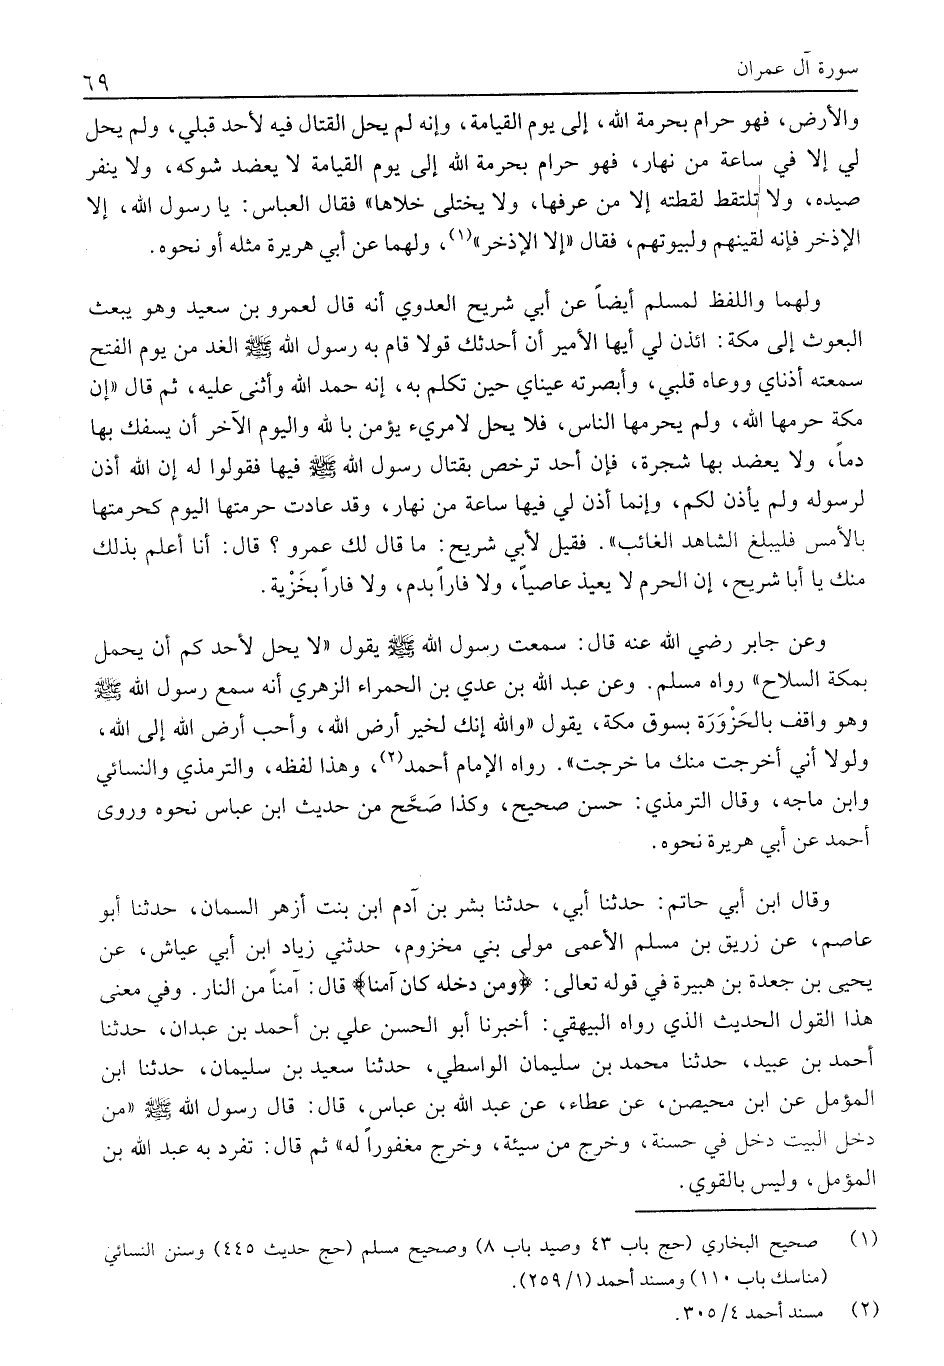 سورة آل عمران
٦٩
والأرض، فهو حرام بحرمة الله، إلى يوم القيامة، وإنه لم يحل القتال فيه لأحد قبلي، ولم يحل
لي إلا في ساعة من نهار، فهو حرام بحرمة الله إلى يوم القيامة لا يعضد شوكه، ولا ينفر
صيده، ولا تلتقط لقطته إلا من عرفها، ولا يختلى خلاها» فقال العباس: يا رسول الله، إلا
الإذخر فإنه لقينهم ولبيوتهم، فقال «إلا الإذخر»(١)، ولهما عن أبي هريرة مثله أو نحوه.
ولهما واللفظ لمسلم أيضاً عن أبي شريح العدوي أنه قال لعمرو بن سعيد وهو يبعث
البعوث إلى مكة: ائذن لي أيها الأمير أن أحدثك قولا قام به رسول الله ﷺ الغد من يوم الفتح
سمعته أذناي ووعاه قلبي، وأبصرته عيناي حين تكلم به، إنه حمد الله وأثنى عليه، ثم قال «إن
مكة حرمها الله، ولم يحرمها الناس، فلا يحل لامريء يؤمن با لله واليوم الآخر أن يسفك بها
دماً، ولا يعضد بها شجرة، فإن أحد ترخص بقتال رسول الله ﷺ فيها فقولوا له إن الله أذن
لرسوله ولم يأذن لكم، وإنما أذن لي فيها ساعة من نهار، وقد عادت حرمتها اليوم كحرمتها
بالأمس فليبلغ الشاهد الغائب». فقيل لأبي شريح: ما قال لك عمرو ؟ قال: أنا أعلم بذلك
منك يا أبا شريح، إن الحرم لا يعيذ عاصياً، ولا فاراً بدم، ولا فاراً بخَزْية.
وعن جابر رضي الله عنه قال: سمعت رسول الله ﷺ يقول «لا يحل لأحد كم أن يحمل
بمكة السلاح» رواه مسلم. وعن عبد الله بن عدي بن الحمراء الزهري أنه سمع رسول الله ﷺ
وهو واقف بالحَزْوَرَة بسوق مكة، يقول «والله إنك لخير أرض الله، وأحب أرض الله إلى الله،
ولولا أني أخرجت منك ما خرجت». رواه الإمام أحمد(٢)، وهذا لفظه، والترمذي والنسائي
وابن ماجه، وقال الترمذي: حسن صحيح، وكذا صَحَّح من حديث ابن عباس نحوه وروى
أحمد عن أبي هريرة نحوه.
وقال ابن أبي حاتم: حدثنا أبي، حدثنا بشر بن آدم ابن بنت أزهر السمان، حدثنا أبو
عاصم، عن زريق بن مسلم الأعمى مولى بني مخزوم، حدثني زياد ابن أبي عياش، عن
يحيى بن جعدة بن هبيرة في قوله تعالى: ﴿ومن دخله كان آمنا﴾ قال: آمناً من النار. وفي معنى
هذا القول الحديث الذي رواه البيهقي: أخبرنا أبو الحسن علي بن أحمد بن عبدان، حدثنا
أحمد بن عبيد، حدثنا محمد بن سليمان الواسطي، حدثنا سعيد بن سليمان، حدثنا ابن
المؤمل عن ابن محيصن، عن عطاء، عن عبد الله بن عباس، قال: قال رسول الله ﷺ «من
دخل البيت دخل في حسنة، وخرج من سيئة، وخرج مغفوراً له» ثم قال: تفرد به عبد الله بن
المؤمل، وليس بالقوي.
(١) صحيح البخاري (حج باب ٤٣ وصيد باب ٨) وصحيح مسلم (حج حديث ٤٤٥) وسنن النسائي
(مناسك باب ١١٠) ومسند أحمد (٢٥٩/١).
(٢) مسند أحمد ٣٠٥/٤.